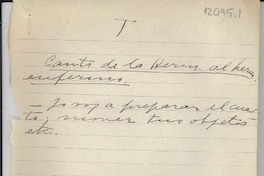 12095.1
T
Canto de la Herm. al herm.
enfermo.
— Io voy a preparar el cuar
to; mover tus objetos
etc.